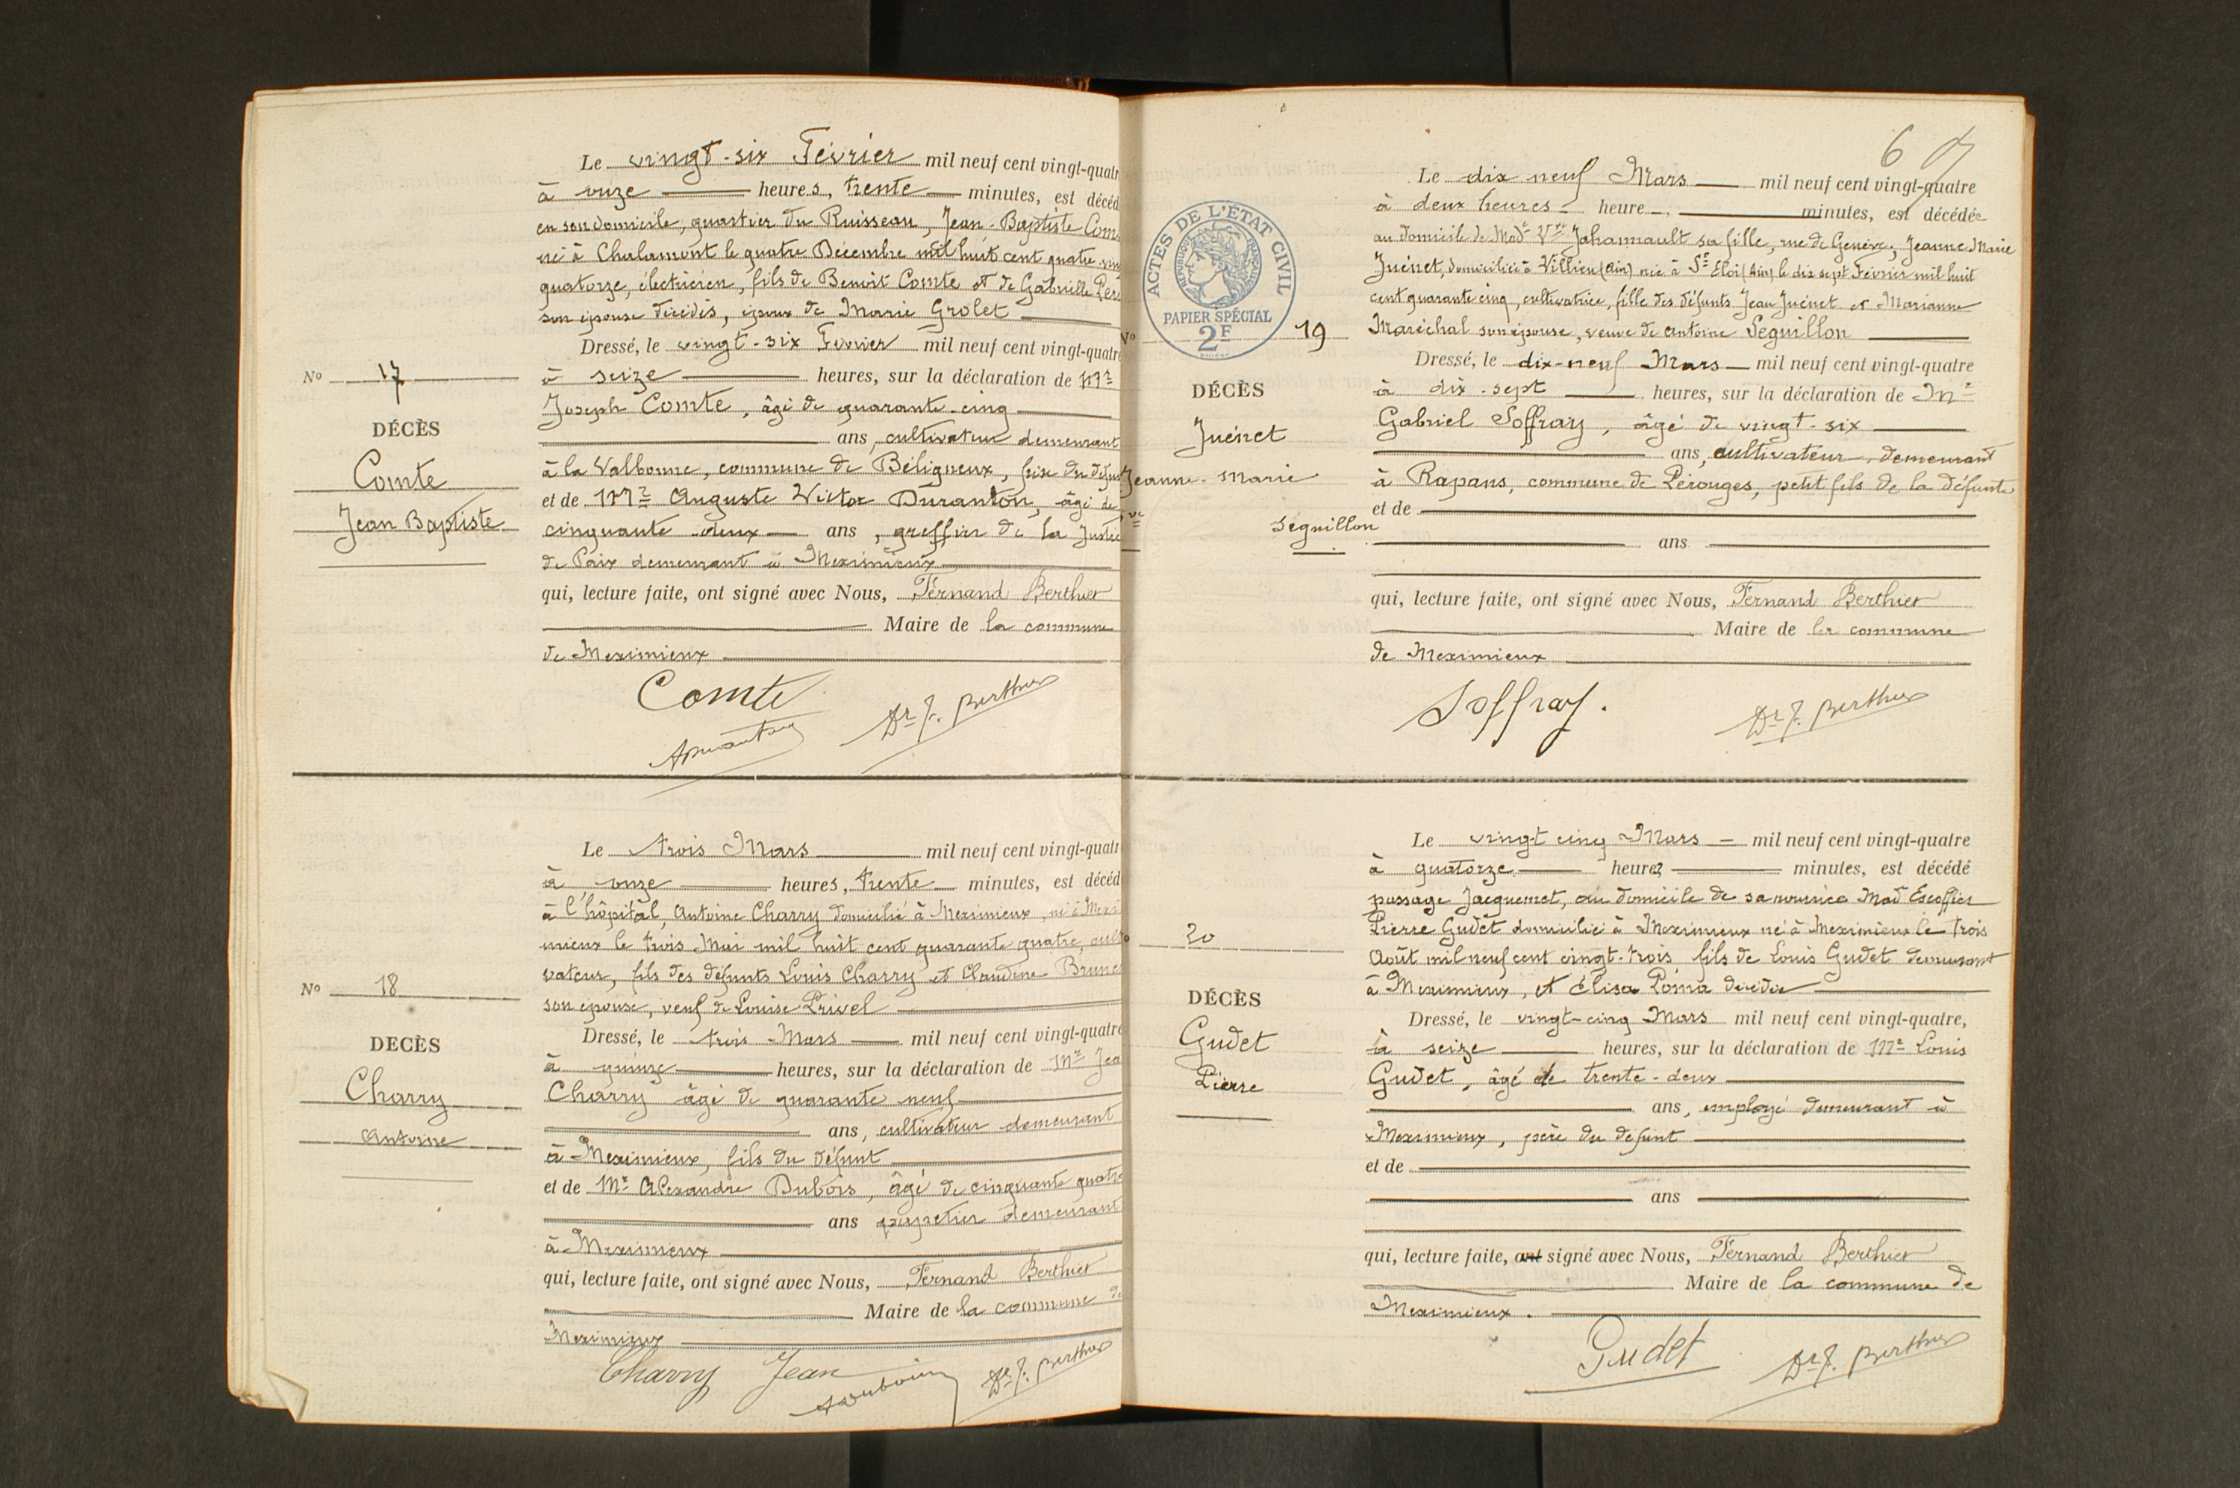 Le vingt-six Février mil neuf cent vingt-quatr
à onze heures, trente minutes, est décéd
en son domicile, quartier du Ruisseau, Jean-Baptiste Com
né à Chalamont le quatre Décembre mil huit cent quatre vin
quatorze, électricien, fils de Benoit Comte et de Gabrielle
son épouse décédés, époux de Marie Grolet
Dressé, le vingt-six Fevrier mil neuf cent vingt-quatre
à seize heures, sur la déclaration de Mr
Joseph Comte, âgé de quarante-cinq
ans, cultivateur demeurant
à la Valbonne, commune de Béligneux, frère du défunt
et de Mr Auguste Victor Duranton, âgé de
cinquante-deux ans, greffier de la Justice
de Paix demeurant à Meximieux
qui, lecture faite, ont signé avec Nous, Fernand Berthier
Maire de la commune
de Meximieux
No 17
DÉCÈS
Comte
Jean Baptiste
Comte
Dr F. Berthier
Le trois Mars mil neuf cent vingt-quatr
à onze heures, trente minutes, est décéd
à l'hôpital, Antoine Charry domicilié à Meximieux, né à Mexi
mieux le trois Mai mil huit cent quarante quatre, culti
vateur, fils des défunts Louis Charry et Claudine
son épouse, veuf de Louise Privel
Dressé, le trois Mars mil neuf cent vingt-quatre
à quinze heures, sur la déclaration de Mr Jea
Charry âgé de quarante neuf
ans, cultivateur demeurant
à Meximieux, fils du défunt
et de Mr Alexandre Dubois, âgé de cinquante quatre
ans papetier demeurant
à Meximieux
qui, lecture faite, ont signé avec Nous, Fernand Berthier
Maire de la commune de
Meximieux
No 18
DECÈS
Charry
Antoine
Charry Jean
Dr F. Berthier
6
Le dix neuf Mars mil neuf cent vingt-quatre
à deux heures heure minutes, est décédée
au domicile de Made Vve Jahannault sa fille, rue de Genève, Jeanne Marie
Juénet, domiciliée à Villieu (Ain) née à St Eloi (Ain) le dix sept Février mil huit
cent quarante cinq, cultivatrice, fille des défunts Jean Juénet et Marianne
Maréchal son épouse, veuve de Antoine Seguillon
Dressé, le dix-neuf Mars mil neuf cent vingt-quatre
à dix-sept heures, sur la déclaration de Mr
Gabriel Soffray, âgé de vingt-six
ans, cultivateur, demeurant
à Rapans, commune de Pérouges, petit fils de la défunte
et de
ans
qui, lecture faite, ont signé avec Nous, Fernand Berthier
Maire de la commune
de Meximieux
ACTES DE L'ÉTAT CIVIL
RÉPUBLIQUE FRANÇAISE
PAPIER SPÉCIAL
2F
No 19
DÉCÈS
Juénet
Jeanne-Marie
ve
Séguillon
Soffray.
Dr F. Berthier
Le vingt cinq Mars mil neuf cent vingt-quatre
à quatorze heures minutes, est décédé
passage Jacquemet, au domicile de sa nourrice Mad Escoffier
Pierre Gudet domicilié à Meximieux né à Meximieux le trois
Août mil neuf cent vingt-trois fils de Louis Gudet demeurant
à Meximieux, et Elisa Poma décédée
Dressé, le vingt-cinq Mars mil neuf cent vingt-quatre,
à seize heures, sur la déclaration de Mr Louis
Gudet, âgé de trente-deux
ans, employé demeurant à
Meximieux, père du défunt
et de
ans
qui, lecture faite, ont signé avec Nous, Fernand Berthier
Maire de la commune de
Meximieux.
20
DÉCÈS
Gudet
Pierre
Gudet
Dr F. Berthier